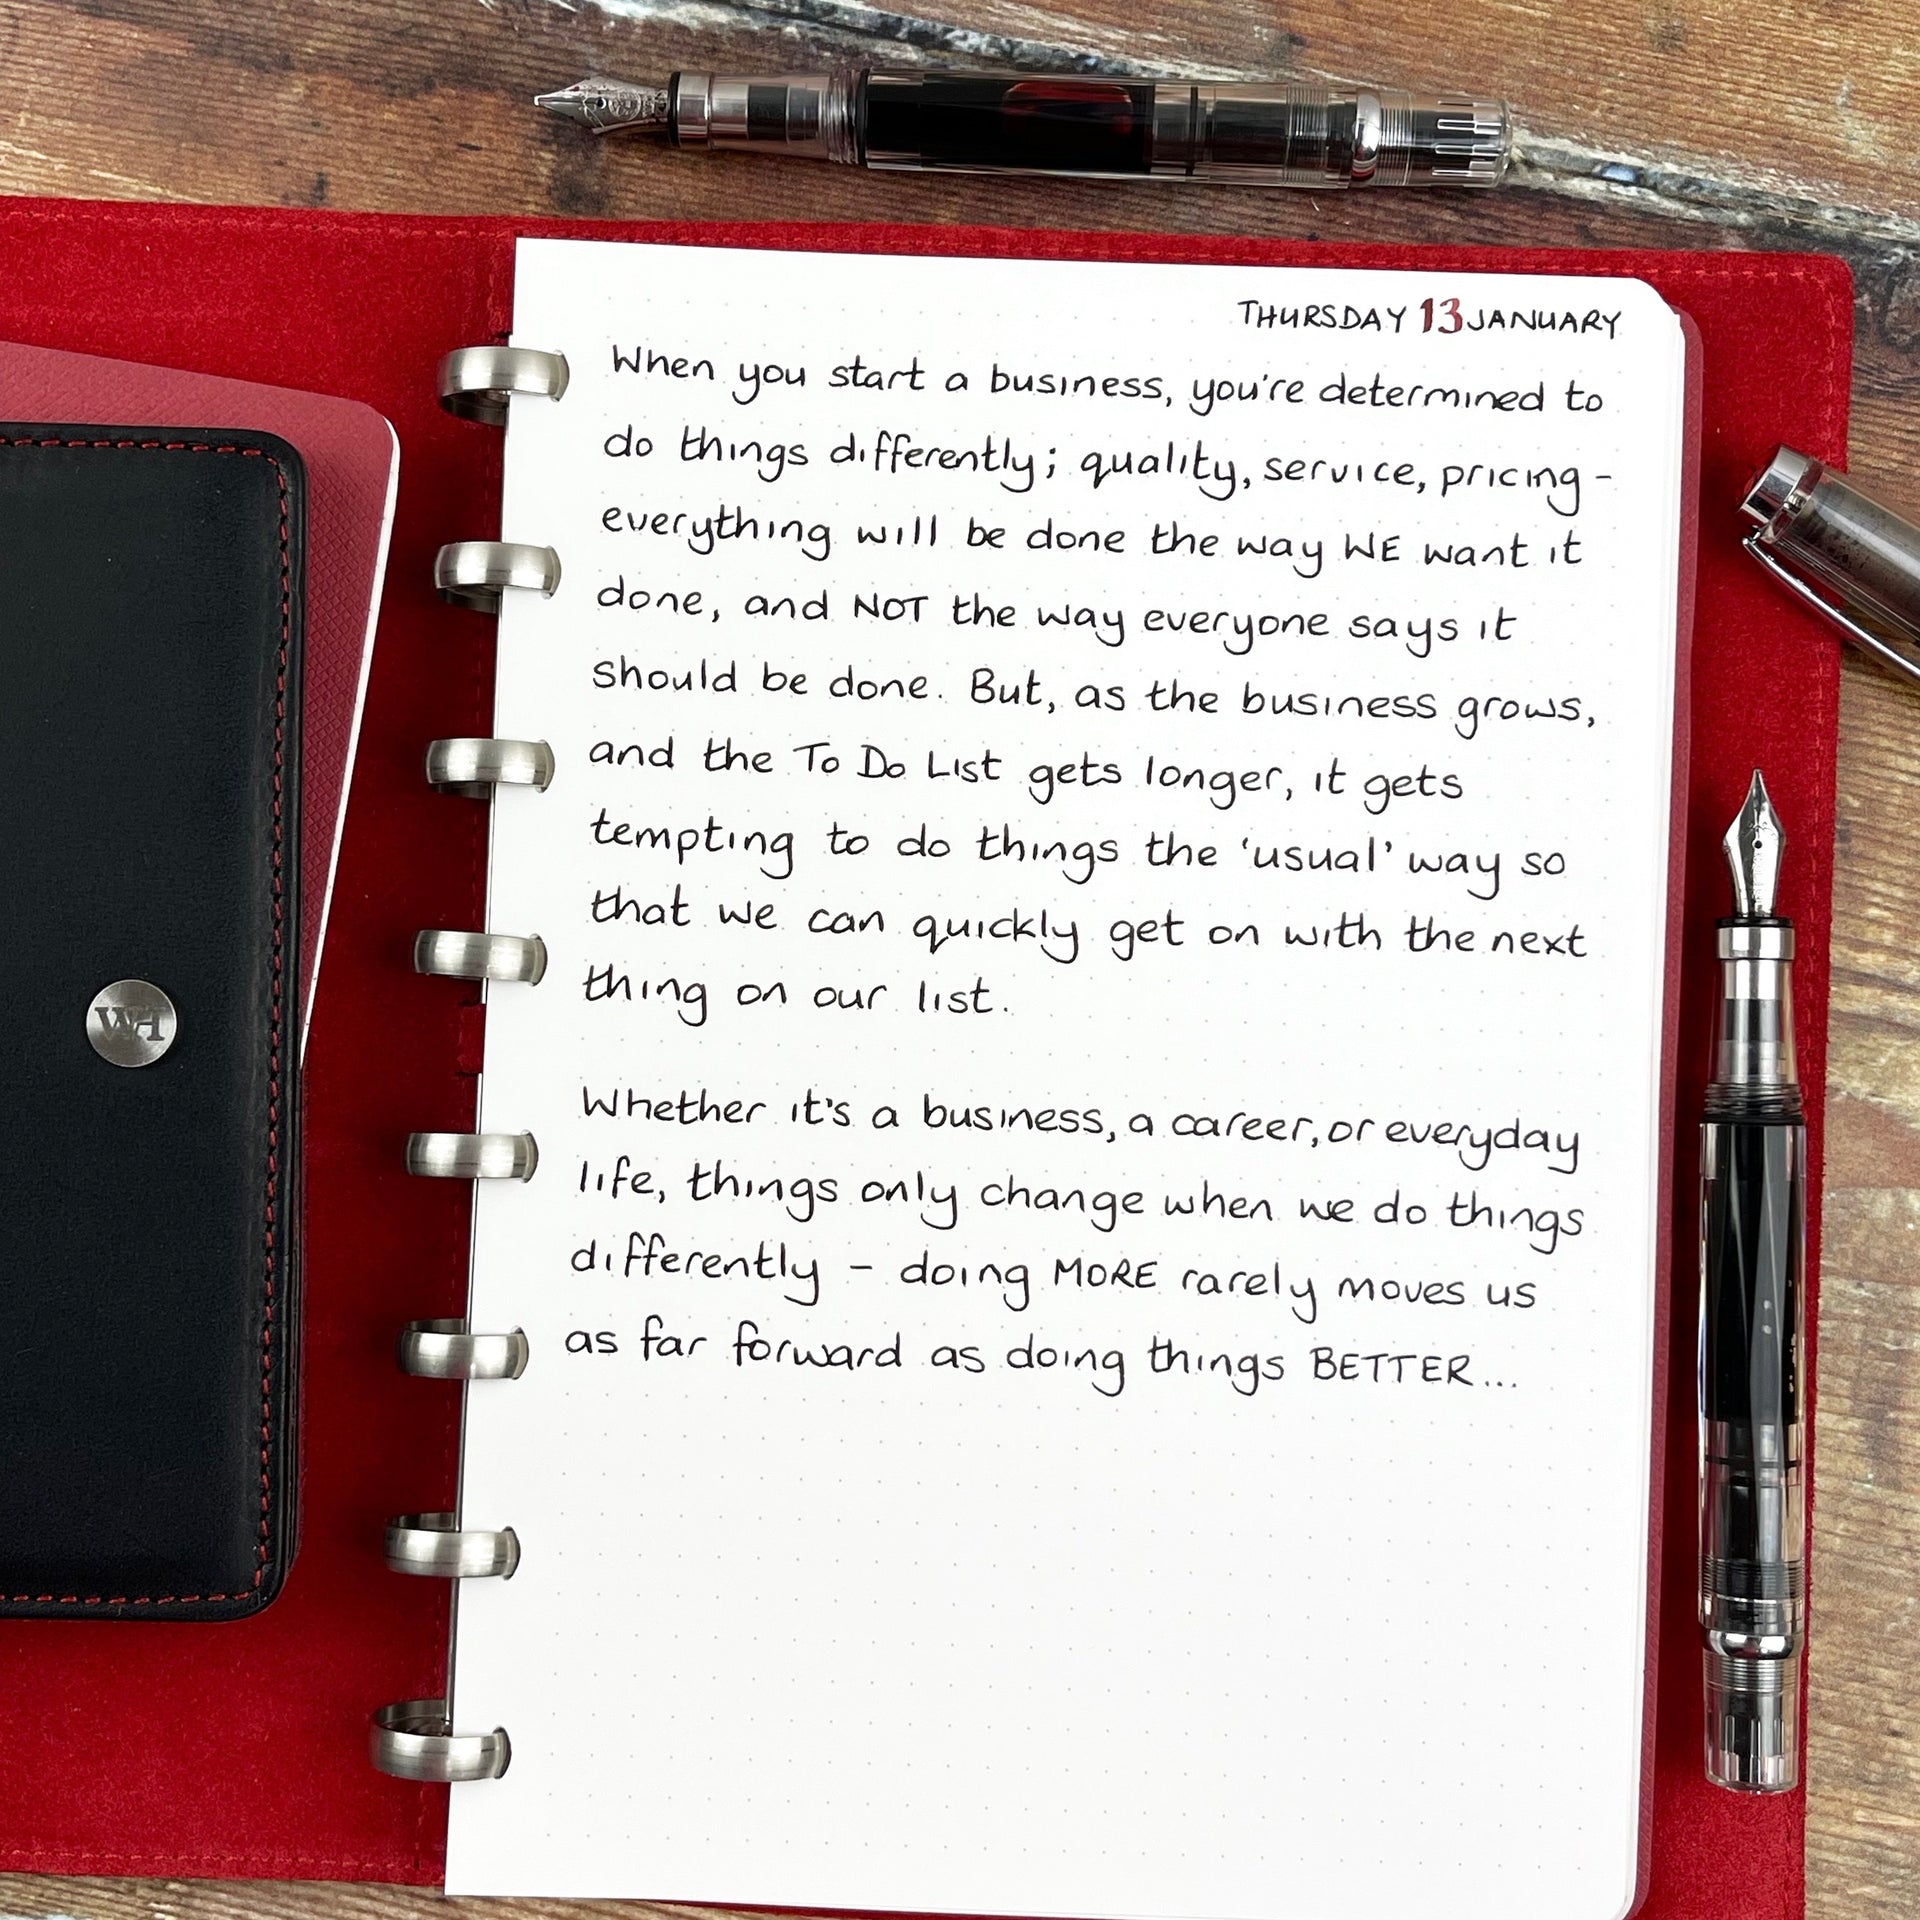 THURSDAY 13 JANUARY
When you start a business, you're determined to
do things differently; quality, service, pricing -
everything will be done the way WE want it
done, and NOT the way everyone says it
should be done. But, as the business grows,
and the To Do List gets longer, it gets
tempting to do things the 'usual' way so
that we can quickly get on with the next
thing on our list.
Whether it's a business, a career, or everyday
life, things only change when we do things
differently – doing MORE rarely moves us
as far forward as doing things BETTER...